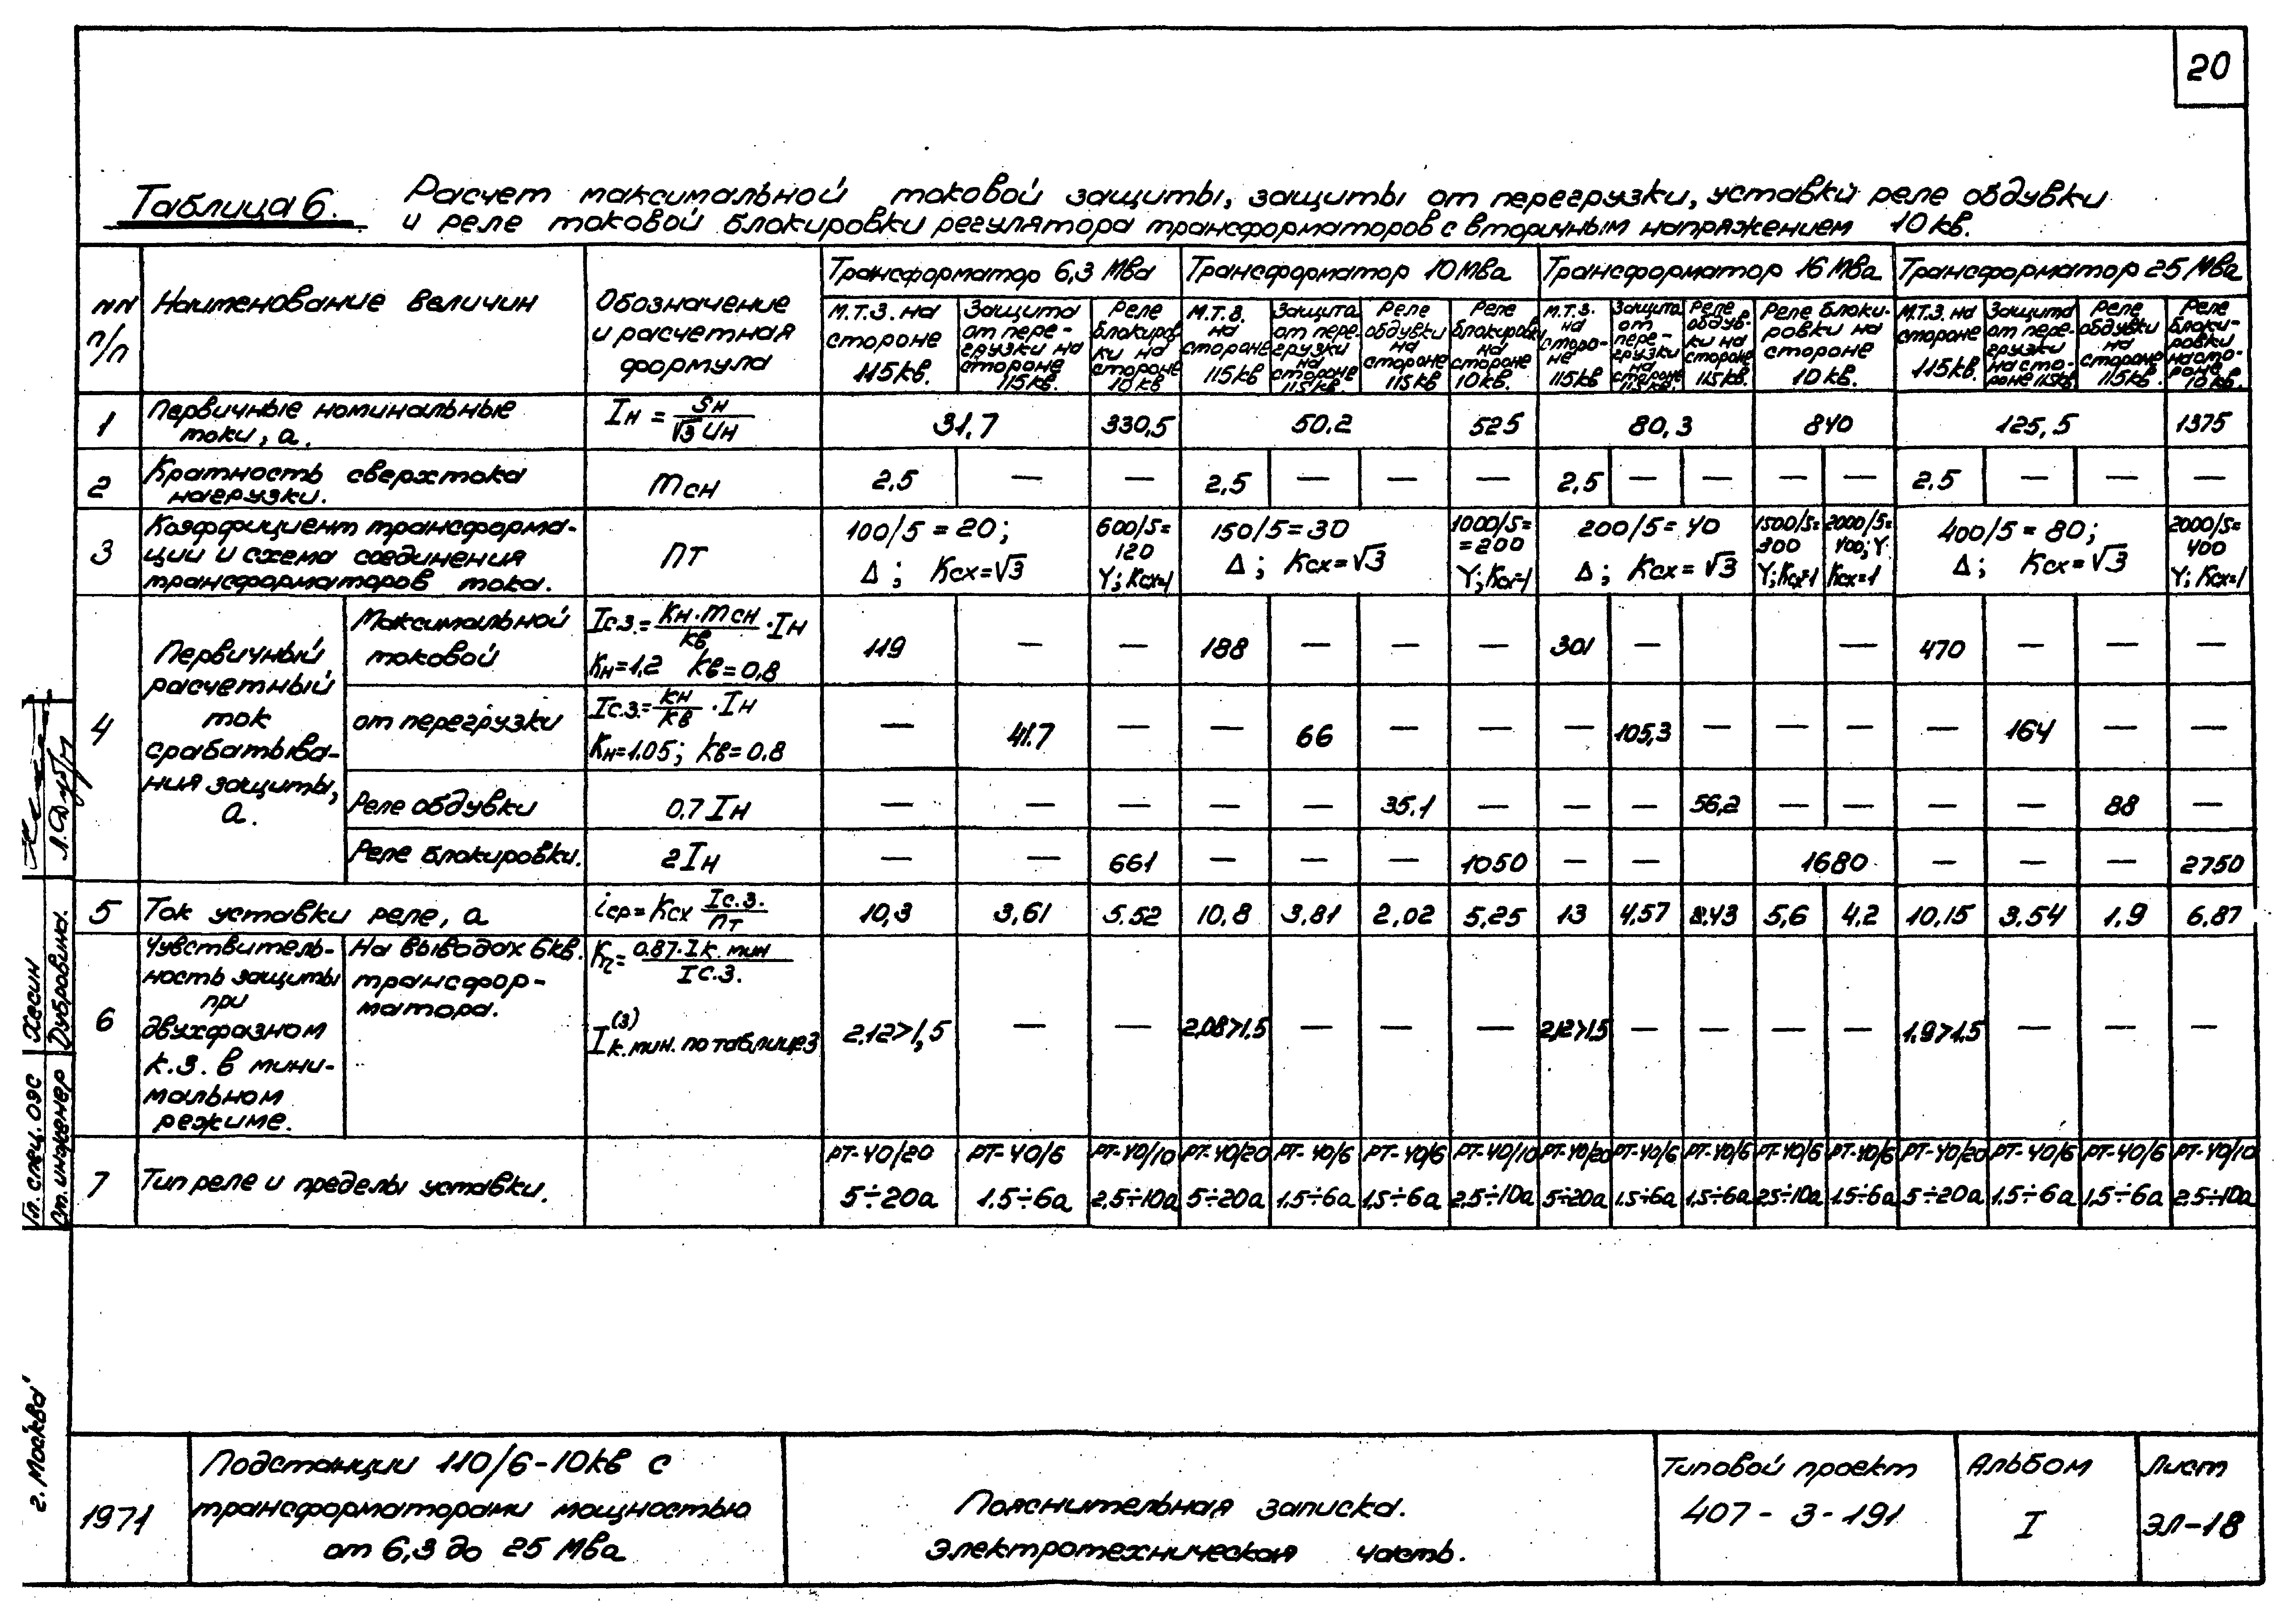 20
Таблица 6. Расчет максимальной токовой защиты, защиты от перегрузки, уставки реле обдувки
и реле токовой блокировки регулятора трансформаторов с вторичным напряжением 10 кв.
NN п/п
Наименование величин
Обозначение и расчетная формула
Трансформатор 6,3 Мва
Трансформатор 10 Мва
Трансформатор 16 Мва
Трансформатор 25 Мва
М.Т.З. на стороне 115кв.
Защита от перегрузки на стороне 115кв.
Реле блокировки на стороне 10кв
М.Т.З. на стороне 115кв
Защита от перегрузки на стороне 115кв.
Реле обдувки на стороне 115кв
Реле блокировки на стороне 10кв.
М.Т.З. на стороне 115кв
Защита от перегрузки на стороне 115кв.
Реле обдувки на стороне 115кв.
Реле блокировки на стороне 10кв.
М.Т.З. на стороне 115кв.
Защита от перегрузки на стороне 115кв.
Реле обдувки на стороне 115кв.
Реле блокировки на стороне 10кв.
1 Первичные номинальные токи, а. Iн = Sн/√3 Uн 31,7 330,5 50.2 525 80,3 840 125,5 1375
2 Кратность сверхтока нагрузки. mсн 2,5 — — 2,5 — — — 2,5 — — — — 2.5 — — —
3 Коэффициент трансформации и схема соединения трансформаторов тока. nт
100/5 = 20; Δ; Kсх=√3
600/5= 120 Y; Kсх=1
150/5=30 Δ; Kсх=√3
1000/5= =200 Y; Kсх=1
200/5= 40 Δ; Kсх=√3
1500/5= 300 Y; Kсх=1
2000/5= 400; Y Kсх=1
400/5 = 80; Δ; Kсх=√3
2000/5= 400 Y; Kсх=1
4 Первичный расчетный ток срабатывания защиты, а.
Максимальной токовой Iс.з.= Kн·mсн/kв ·Iн Kн=1,2 kв=0,8 119 — — 188 — — — 301 — — 470 — — —
от перегрузки Iс.з.= kн/kв ·Iн Kн=1.05; kв=0.8 — 41.7 — — 66 — — — 105,3 — — — — 164 — —
Реле обдувки 0.7 Iн — — — — — 35.1 — — — 56,2 — — — — 88 —
Реле блокировки. 2Iн — — 661 — — — 1050 — — 1680 — — — 2750
5 Ток уставки реле, а iср=Kсх Iс.з./nт 10,3 3,61 5.52 10,8 3,81 2,02 5,25 13 4,57 2.43 5,6 4,2 10,15 3.54 1,9 6,87
6 Чувствительность защиты при двухфазном к.з. в минимальном режиме.
На выводах 6кв. трансформатора.
Kч= 0.87·Iк.мин/Iс.з.
I(3)к.мин. по таблице 3
2.12>1,5 — — 2,08>1.5 — — — 2,12>1.5 — — — — 1.9>1.5 — — —
7 Тип реле и пределы уставки.
РТ-40/20 РТ-40/6 РТ-40/10 РТ-40/20 РТ-40/6 РТ-40/6 РТ-40/10 РТ-40/20 РТ-40/6 РТ-40/6 РТ-40/6 РТ-40/6 РТ-40/20 РТ-40/6 РТ-40/6 РТ-40/10
5÷20а 1.5÷6а 2,5÷10а 5÷20а 1.5÷6а 1,5÷6а 2,5÷10а 5÷20а 1.5÷6а 1,5÷6а 2,5÷10а 1.5÷6а 5÷20а 1.5÷6а 1,5÷6а 2.5÷10а
Гл. спец. ОЭС Хесин
Ст. инженер Дубровина.
г. Москва
1971
Подстанции 110/6-10кв с
трансформаторами мощностью
от 6,3 до 25 Мва
Пояснительная записка.
Электротехническая часть.
Типовой проект
407-3-191
Альбом
I
Лист
ЭЛ-18